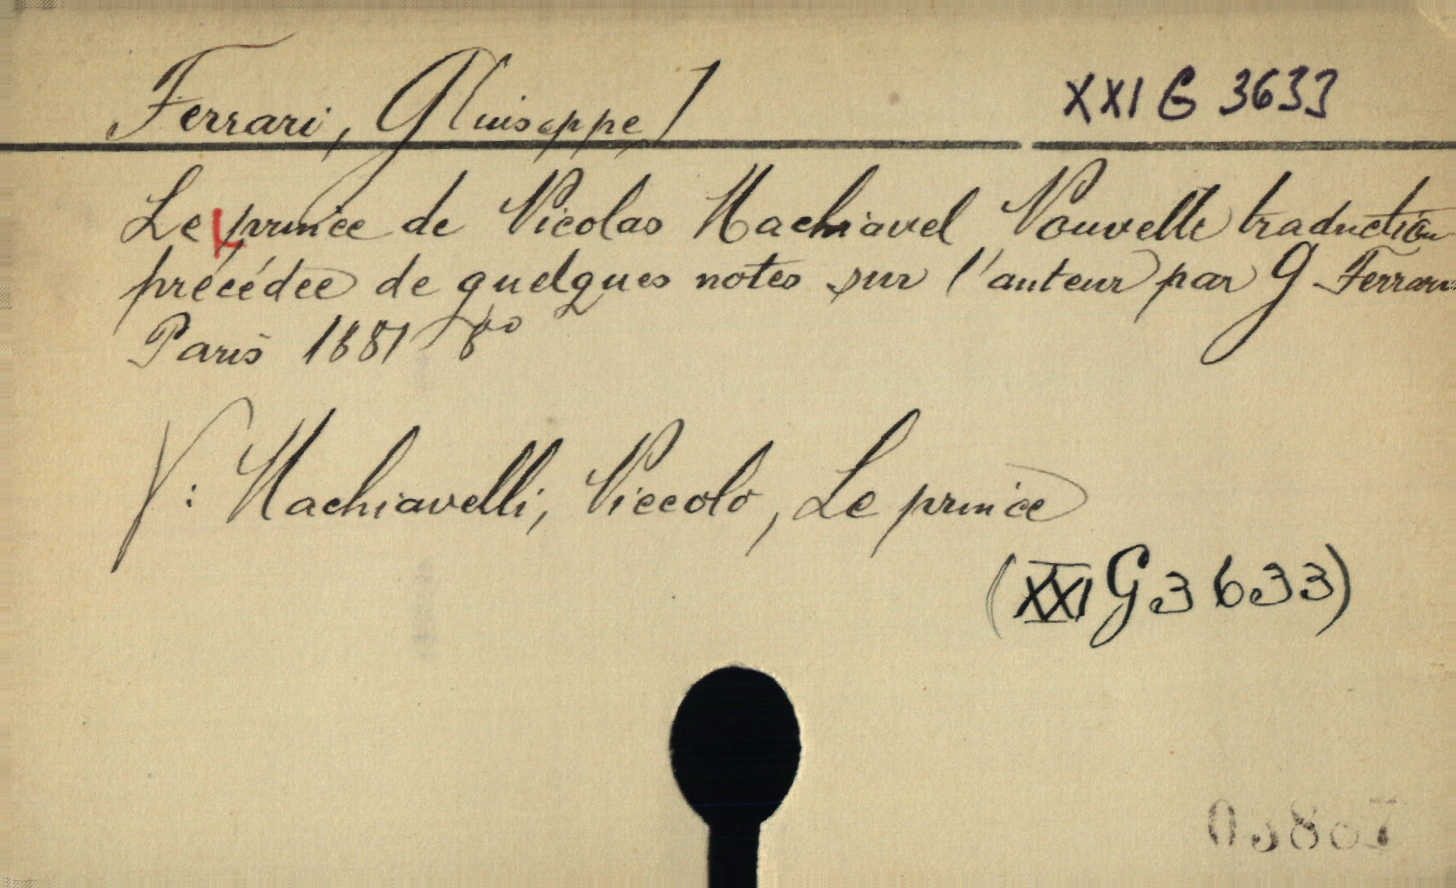 Ferrari, G[iuseppe]
XXI G 3633
Le prince de Nicolas Machiavel Nouvelle traduction
précédée de quelques notes sur l'auteur par G Ferrari
Paris 1881 8º
V: Machiavelli, Niccolo, Le prince
(XXI G 3633)